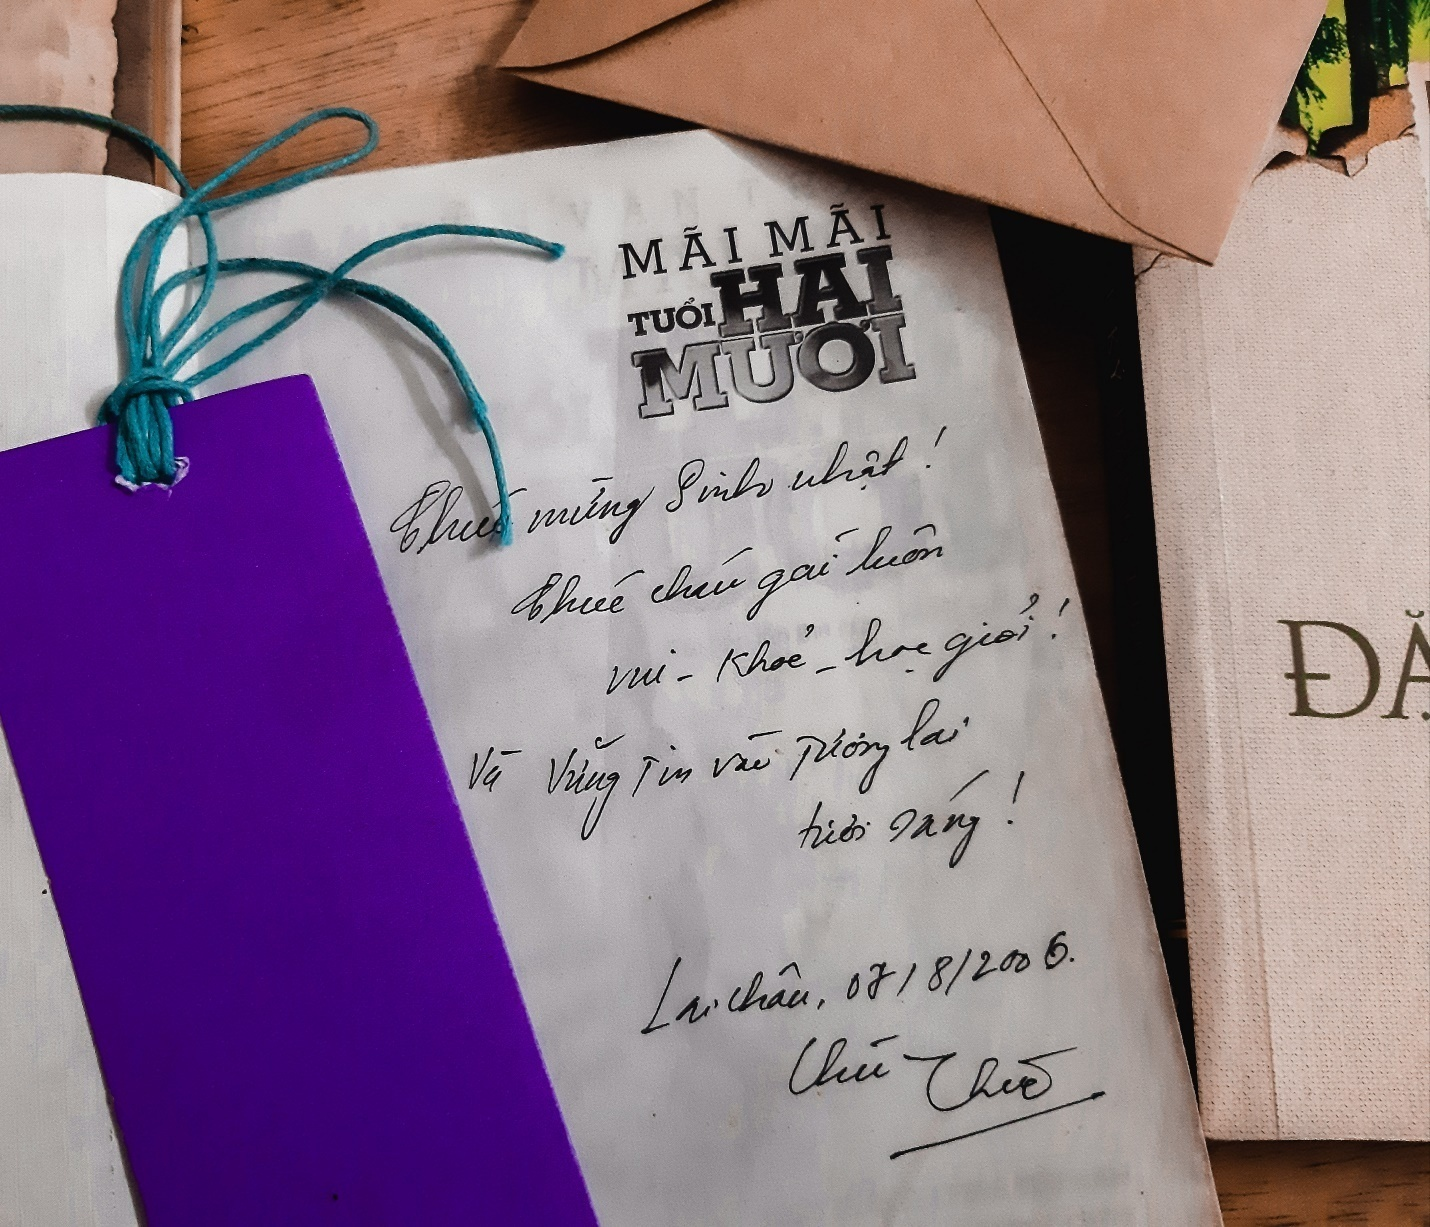 MÃI MÃI
TUỔI HAI
MƯƠI
Chúc mừng Sinh nhật!
Chúc cháu gái luôn
vui - khoẻ - học giỏi!
Và Vững Tin vào Tương lai
tươi sáng!
Lai Châu, 07/8/2006.
Chú
ĐẶ